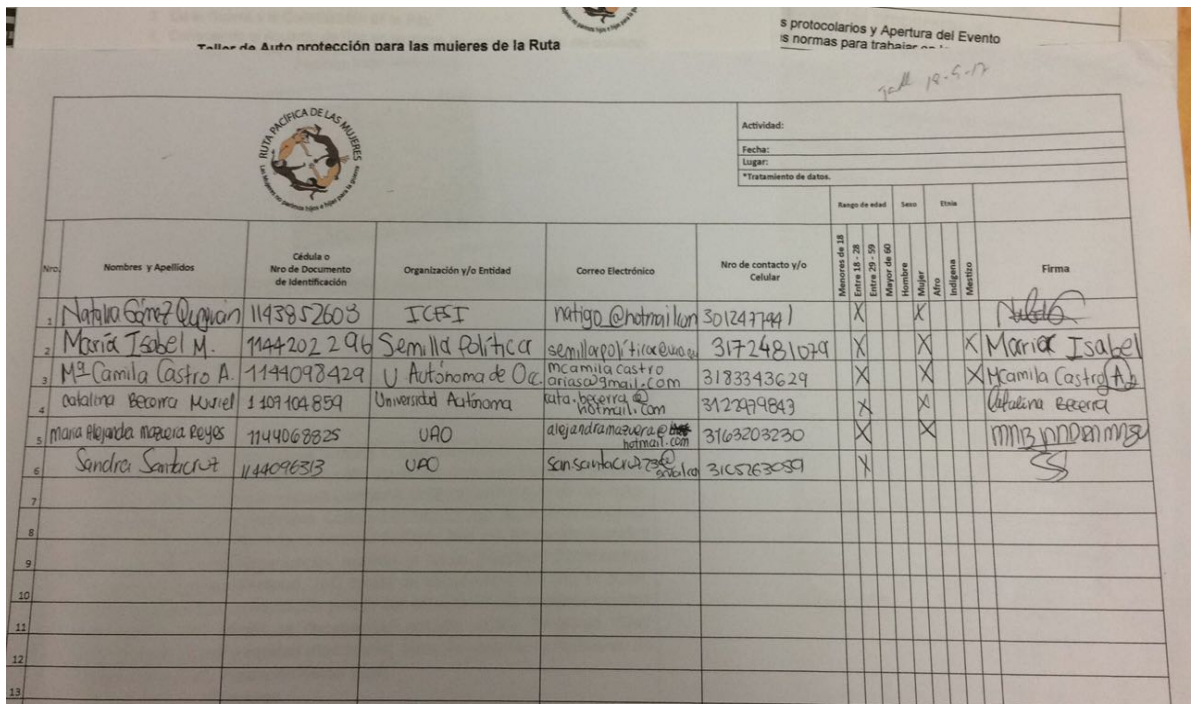 s protocolarios y Apertura del Evento
s normas para trabajar en
Taller de Auto protección para las mujeres de la Ruta
RUTA PACÍFICA DE LAS MUJERES
Las mujeres no parimos hijos e hijas para la guerra
Actividad:
Fecha:
Lugar:
*Tratamiento de datos.
Rango de edad Sexo Etnia
Nro. Nombres y Apellidos Cédula o Nro de Documento de Identificación Organización y/o Entidad Correo Electrónico Nro de contacto y/o Celular Menores de 18 Entre 18 - 28 Entre 29 - 59 Mayor de 60 Hombre Mujer Afro Indígena Mestizo Firma
1 Natalia Gómez 1143852603 ICESI natigo_@hotmail.com 3012477441 X X
2 María Isabel M. 1144202296 Semilla Política 3172481079 X X X María Isabel
3 Mª Camila Castro A. 1144098429 U Autónoma de Occ. mcamilacastroariasa@gmail.com 3183343629 X X X MCamila Castro A
4 Catalina Becerra Muriel 1107104859 Universidad Autónoma cata.becerra@hotmail.com 3122979843 X X Catalina Becerra
5 Maria Alejandra Mazuera Reyes 1144068825 UAO alejandramazuera@hotmail.com 3163203230 X X
6 Sandra Santacruz 1144096313 UAO 3105263059 X
7
8
9
10
11
12
13